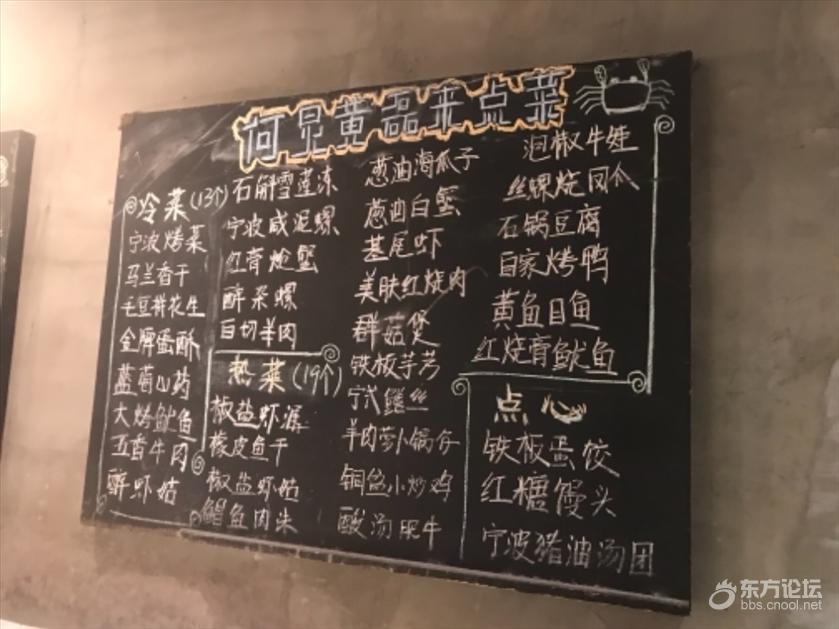 何炅黄磊来点菜
冷菜(13个)
宁波烤菜
马兰香干
毛豆拌花生
金牌蛋酥
蓝莓山药
大烤鱿鱼
五香牛肉
醉虾姑
石斛雪莲冻
宁波咸泥螺
红膏炝蟹
醉杂螺
白切羊肉
热菜(19个)
椒盐虾潺
橡皮鱼干
椒盐虾姑
鲳鱼肉朱
葱油海瓜子
葱油白蟹
基尾虾
美肤红烧肉
群菇煲
铁板芋艿
宁式鳝丝
羊肉萝卜锅仔
铜盆小炒鸡
酸汤肥牛
泡椒牛蛙
丝螺烧凤爪
石锅豆腐
自家烤鸭
黄鱼目鱼
红烧膏鱿鱼
点心
铁板蛋饺
红糖馒头
宁波猪油汤团
东方论坛
bbs.cnool.net